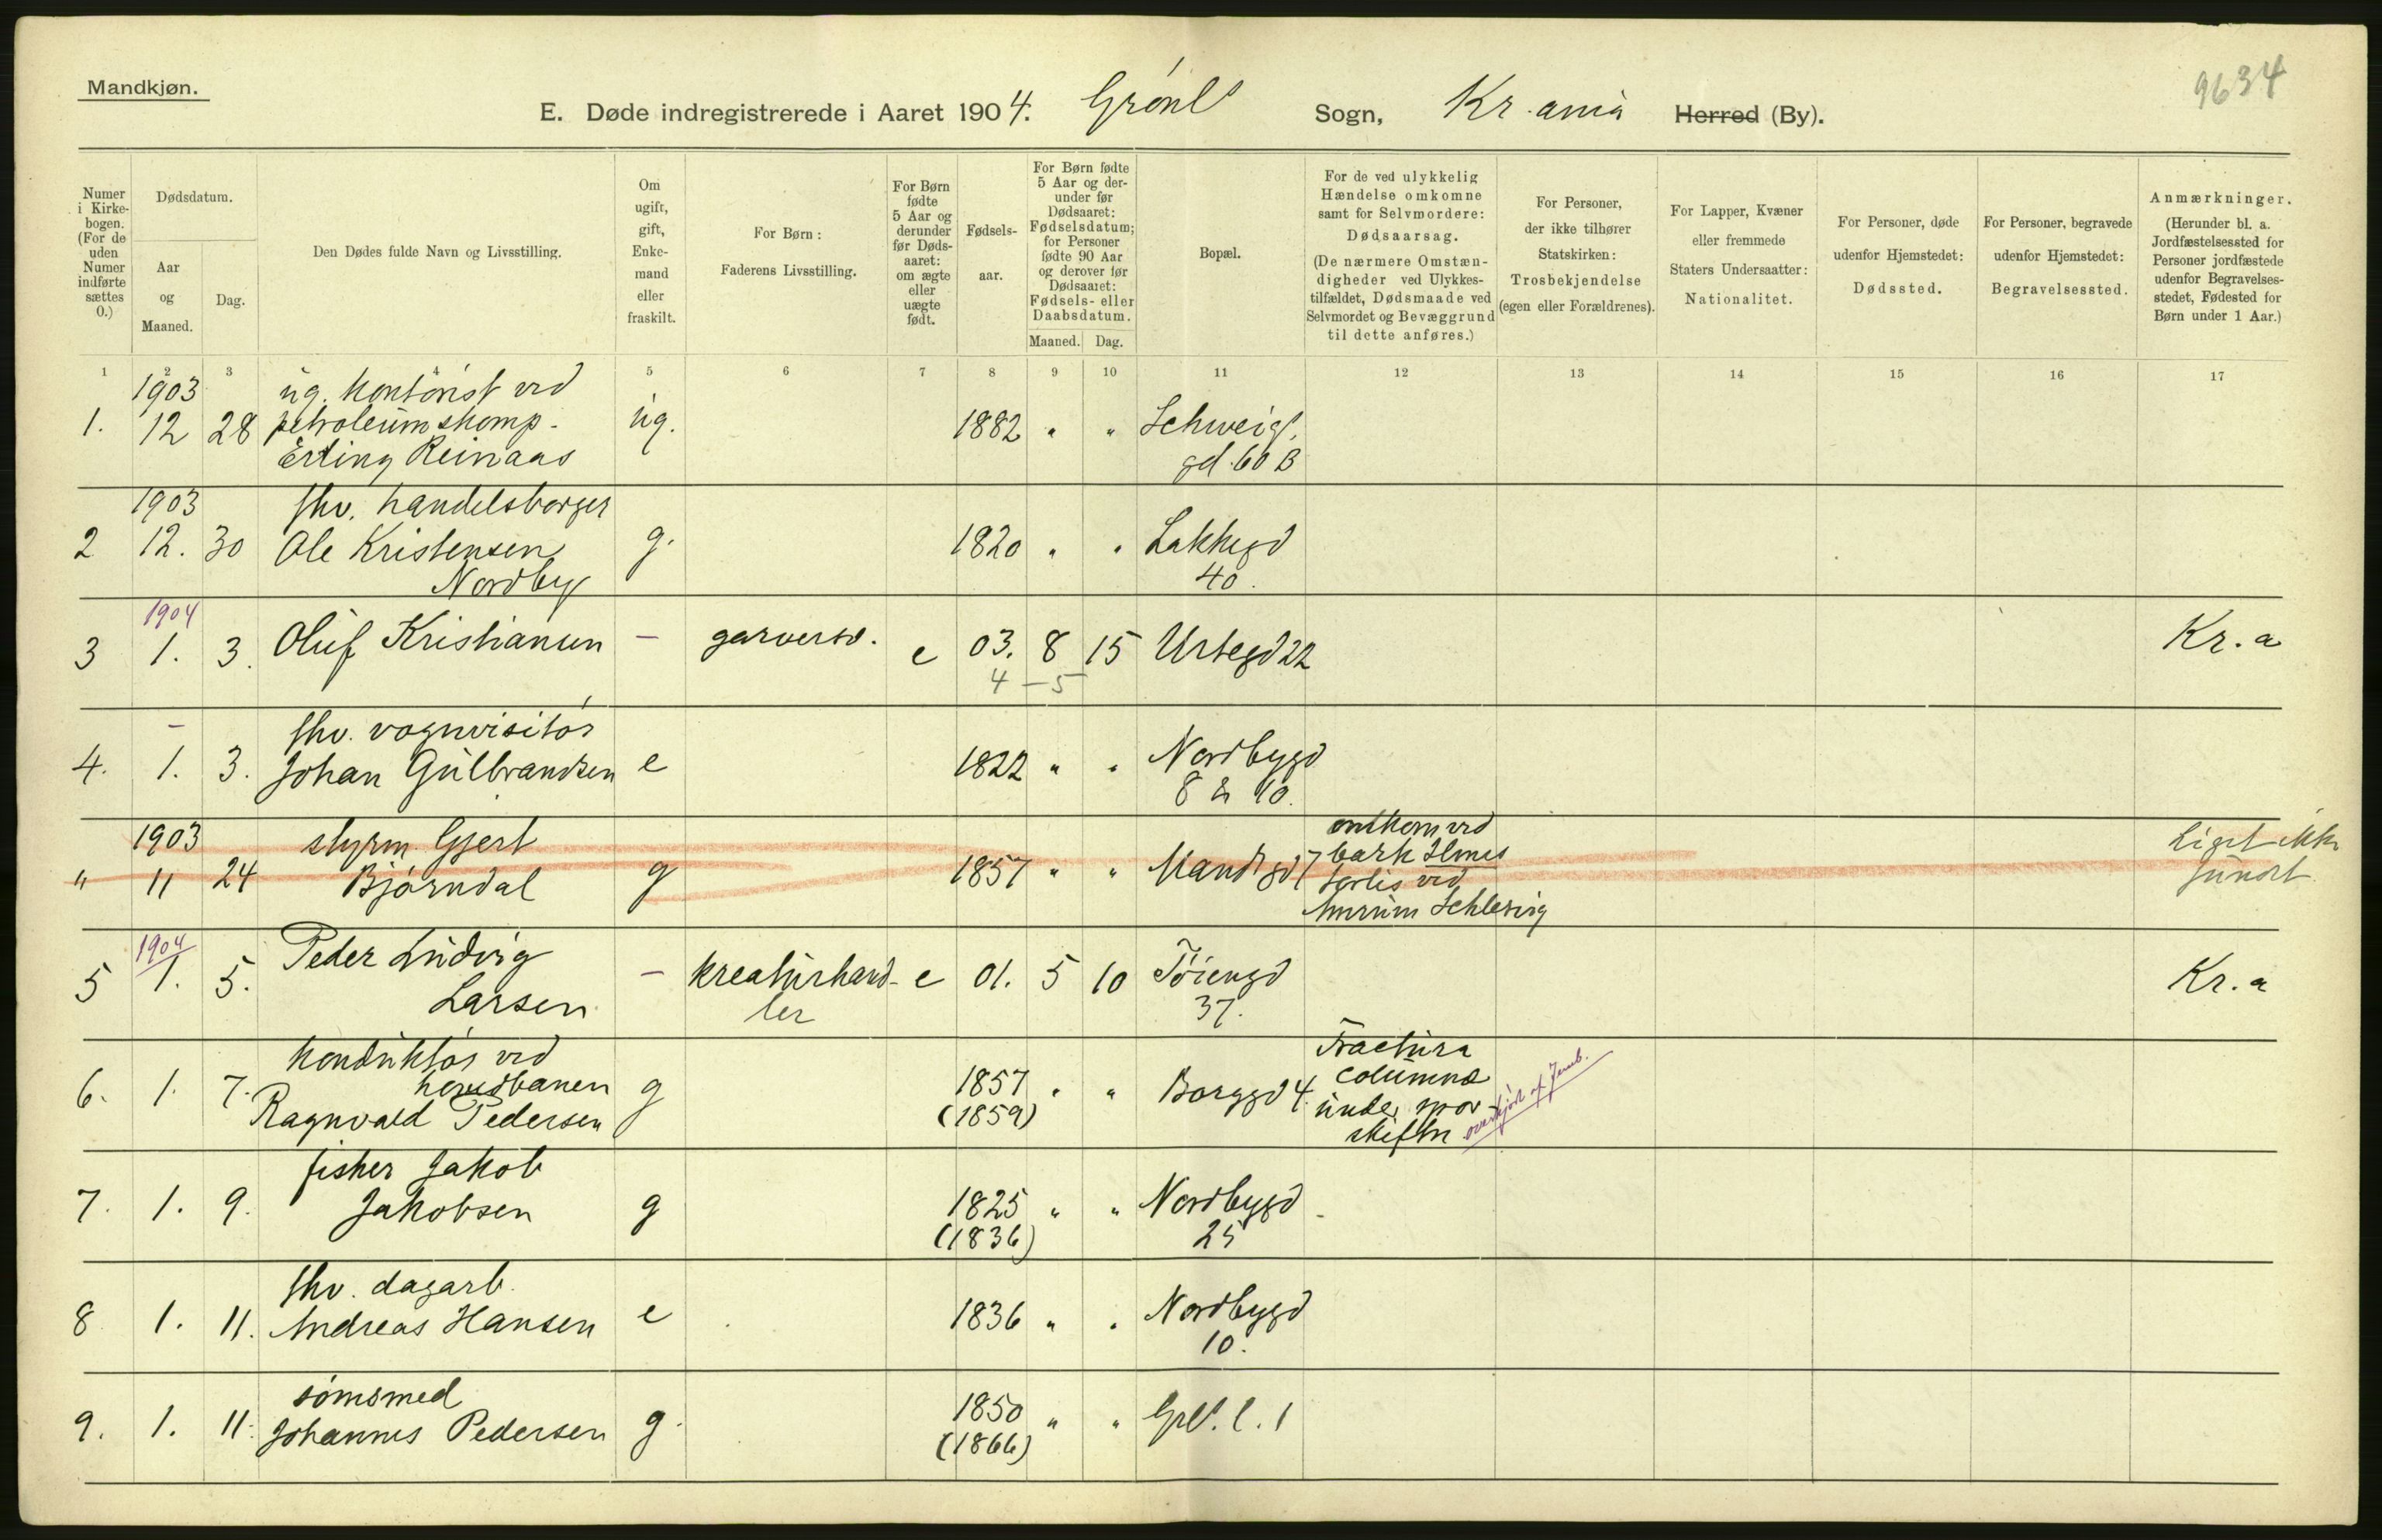 Mandkjøn.
9634
E. Døde indregistrerede i Aaret 1904. Grønl Sogn, Kr.ania Herred (By).
Numer i Kirke-bogen. (For de uden Numer indførte sættes 0.)
Dødsdatum.
Aar og Maaned.
Dag.
Den Dødes fulde Navn og Livsstilling.
Om ugift, gift, Enke-mand eller fraskilt.
For Børn: Faderens Livsstilling.
For Børn fødte 5 Aar og derunder før Døds-aaret: om ægte eller uægte født.
Fødsels-aar.
For Børn fødte 5 Aar og der-under før Dødsaaret: Fødselsdatum; for Personer fødte 90 Aar og derover før Dødsaaret: Fødsels- eller Daabsdatum.
Maaned. Dag.
Bopæl.
For de ved ulykkelig Hændelse omkomne samt for Selvmordere: Dødsaarsag. (De nærmere Omstæn-digheder ved Ulykkes-tilfældet, Dødsmaade ved Selvmordet og Bevæggrund til dette anføres.)
For Personer, der ikke tilhører Statskirken: Trosbekjendelse (egen eller Forældrenes).
For Lapper, Kvæner eller fremmede Staters Undersaatter: Nationalitet.
For Personer, døde udenfor Hjemstedet: Dødssted.
For Personer, begravede udenfor Hjemstedet: Begravelsessted.
Anmærkninger. (Herunder bl. a. Jordfæstelsessted for Personer jordfæstede udenfor Begravelses-stedet, Fødested for Børn under 1 Aar.)
1 2 3 4 5 6 7 8 9 10 11 12 13 14 15 16 17
1903 ug. kontorist ved
1. 12 28 petroleumskomp. ug. 1882 " " Schweigs.
Erling Reinaas gd. 60 B
1903 fhv. handelsborger
2 12. 30 Ole Kristensen g. 1820 " " Lakkegd
Nordby 40.
1904
3 1. 3. Oluf Kristiansen - garversv. e 03. 8 15 Urtegd 22 Kr. a
4 - 5
- fhv. vognvisitør
4. 1. 3. Johan Gulbrandsen e 1822 " " Nordbygd
8 & 10.
1903 styrm Gjert omkom ved
" 11 24 Bjørndal g 1857 " " Mandgd 7 bark
forlis ved
Amrum Schlesvig
Liget ikke
fundet
1904 Peder Ludvig
5 1. 5. Larsen - kreaturhand-ler e 01. 5 10 Tøiengd
37. Kr. a
konduktør ved Fractura
6. 1. 7. hovedbanen g 1857 " " Borggd 4. columnæ
Ragnvald Pedersen (1859) under spor-
skiften overkjørt af Jernb.
fisker Jakob
7. 1. 9. Jakobsen g 1825 " " Nordbygd
(1836) 25
fhv. dagarb.
8 1. 11. Andreas Hansen e 1836 " " Nordbygd
10.
sømsmed
9. 1. 11. Johannes Pedersen g. 1850 " " Grl. l. 1
(1866)